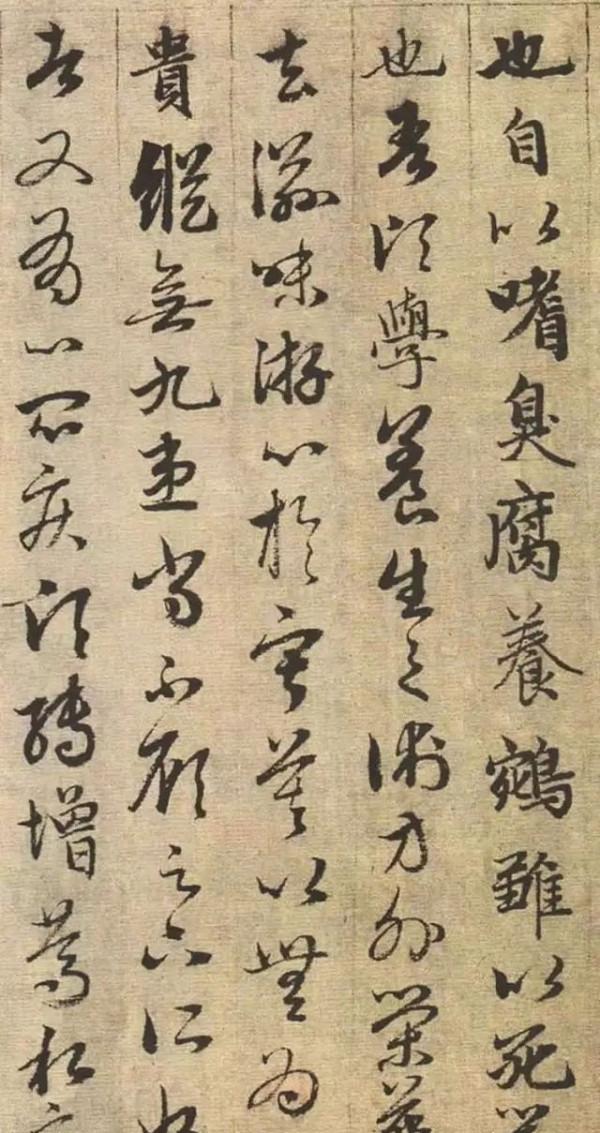 也自以嗜臭腐養鵷雛以死
也吾頃學養生之術方外榮華
去滋味游心於寂寞以無為
貴縱無九患尚不顧足下所好
者又有心悶疾頃轉增篤私